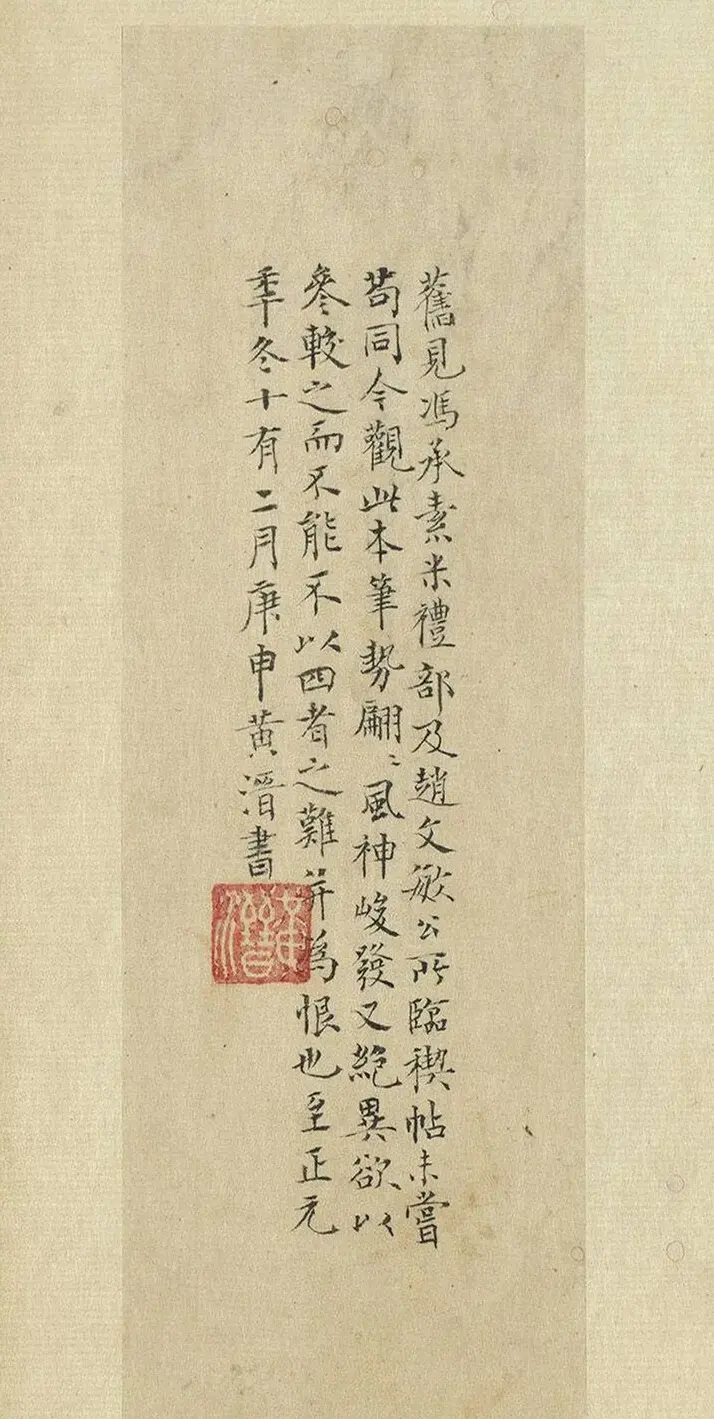 舊見馮承素米禮部及趙文敏公所臨禊帖未嘗
苟同今觀此本筆勢翩〻風神峻發又絕異欲以
參較之而不能不以四者之難并為恨也至正元
年冬十有二月庚申黃溍書